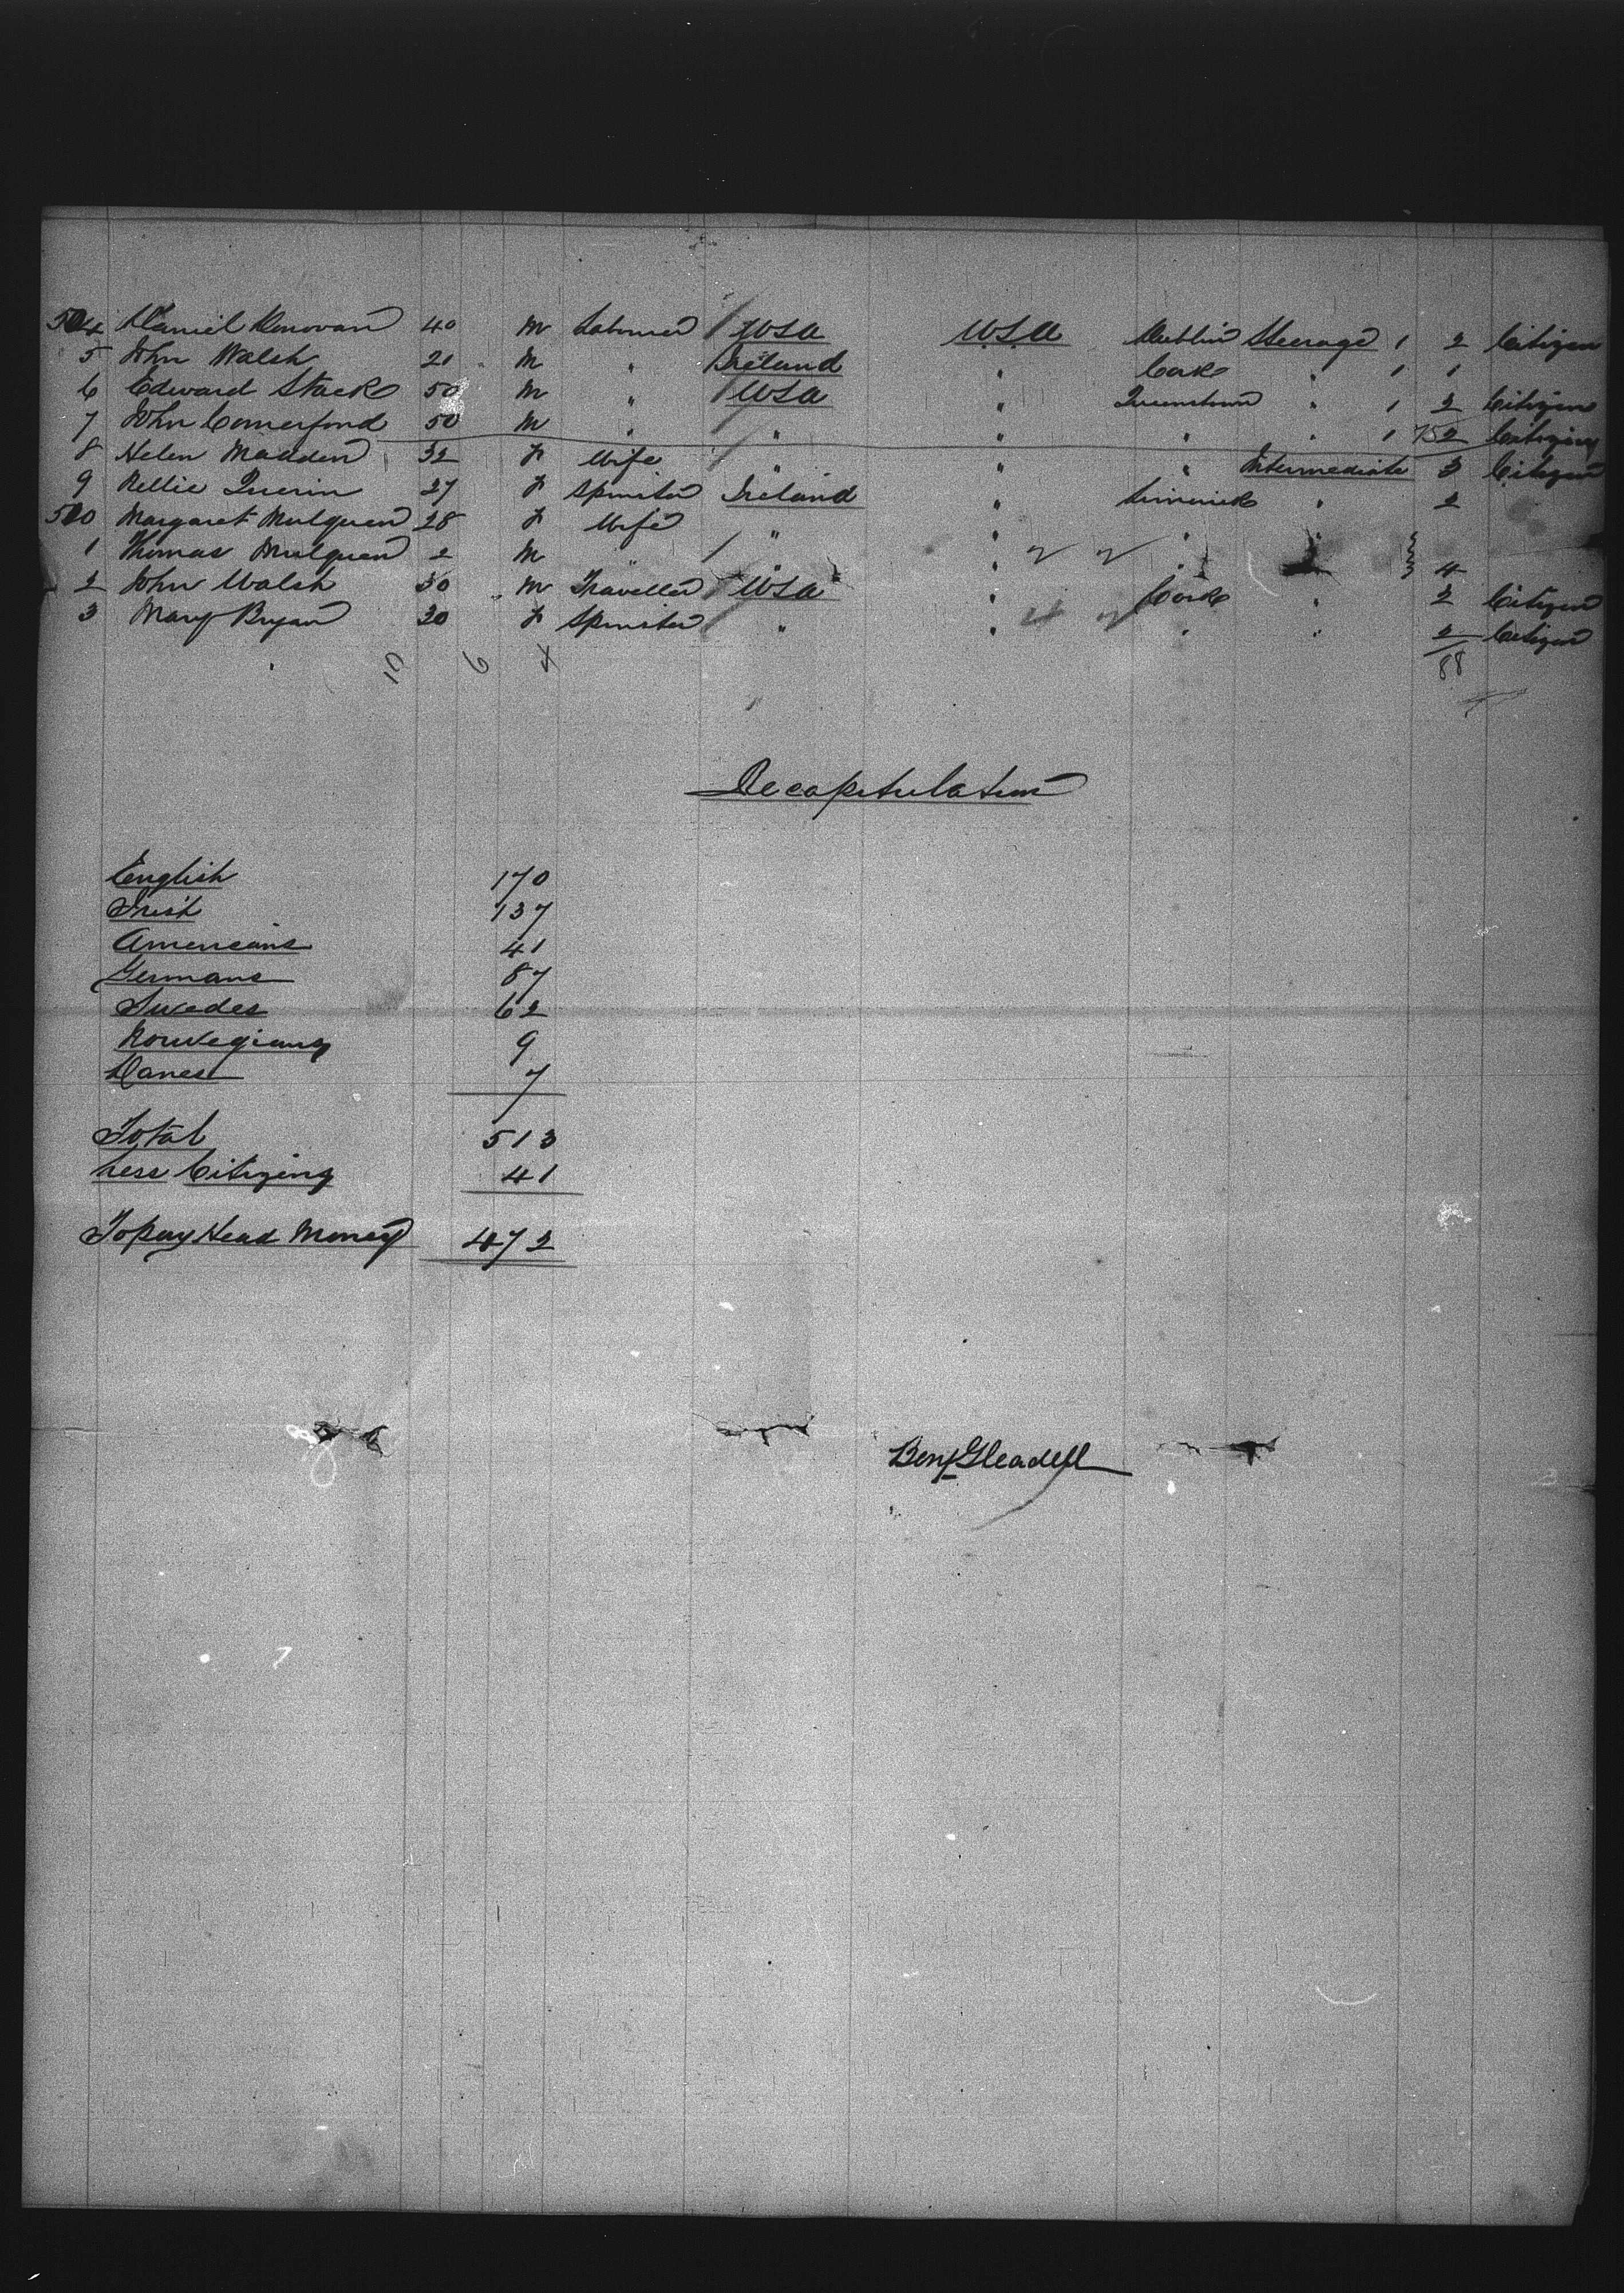 504 Daniel Donovan 40 M Labourer USA USA Dublin Steerage 1 2 Citizen
5 John Walsh 21 M " Ireland " Cork " 1 1
6 Edward Stack 50 M " USA " Queenstown " 1 2 Citizen
7 John Comerford 50 M " " " " " 1 752 Citizen
8 Helen Madden 32 F Wife " " " Intermediate 3 Citizen
9 Nellie Querin 27 F Spinster Ireland " Limerick " 2
510 Margaret Mulqueen 28 F Wife " " " "
1 Thomas Mulqueen 2 M " " " 4
2 John Walsh 30 M Traveller USA " Cork " 2 Citizen
3 Mary Bryan 30 F Spinster " " " " 2 Citizen
10 6 4 88
Recapitulation
English 170
Irish 137
Americans 41
Germans 87
Swedes 62
Norwegians 9
Danes 7
Total 513
Less Citizens 41
To pay Head Money 472
Benj Gleadell